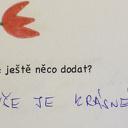 ještě něco dodat?
JE KRÁSNÉ